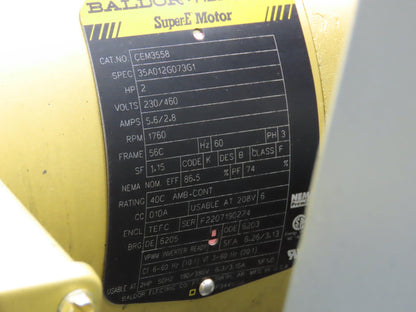 BALDOR
Super-E Motor
CAT.NO. CEM3558
SPEC 35A012G073G1
HP 2
VOLTS 230/460
AMPS 5.6/2.8
RPM 1760
FRAME 56C Hz 60 PH 3
SF 1.15 CODE K DES B CLASS F
NEMA NOM EFF 86.5 % PF 74 %
RATING 40C AMB-CONT
CC 010A USABLE AT 208V 6
ENCL TEFC SER F2207190274
BRG DE 6205 ODE 6203
SFA 6.26/3.13
VPWM INVERTER READY